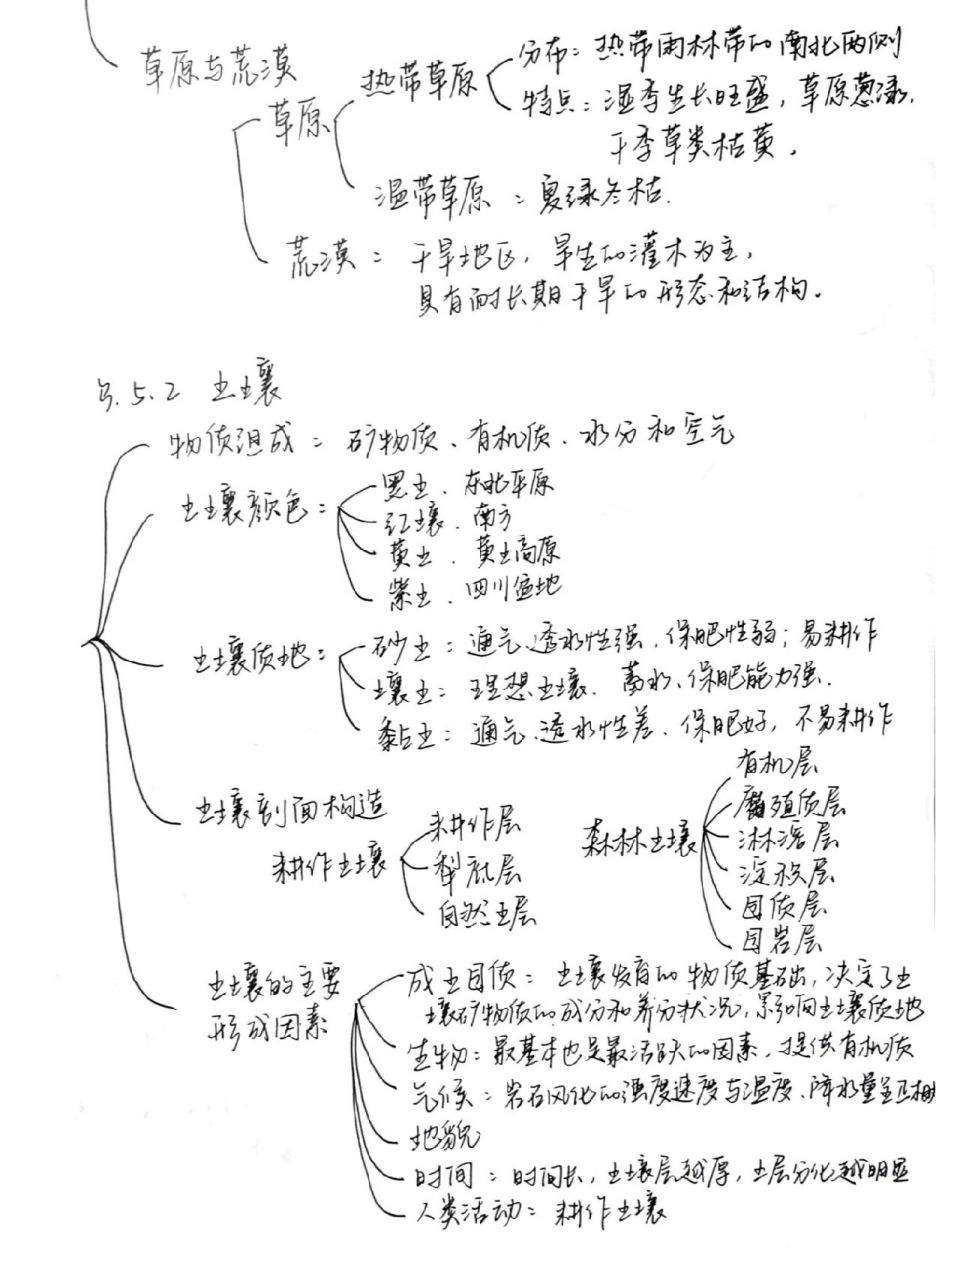 草原与荒漠
草原
热带草原
分布：热带雨林带的南北两侧
特点：湿季生长旺盛，草原葱绿，
干季草类枯黄。
温带草原：夏绿冬枯.
荒漠：干旱地区，旱生的灌木为主，
具有耐长期干旱的形态和结构。
5.2 土壤
物质组成：矿物质、有机质、水分和空气
土壤颜色：
黑土、东北平原
红壤、南方
黄土、黄土高原
紫土、四川盆地
土壤质地：
砂土：通气、透水性强、保肥性弱；易耕作
壤土：理想土壤、蓄水、保肥能力强.
黏土：通气、透水性差、保肥好，不易耕作
土壤剖面构造
耕作土壤
耕作层
犁底层
自然土层
森林土壤
有机层
腐殖质层
淋溶层
淀积层
母质层
母岩层
土壤的主要
形成因素
成土母质：土壤发育的物质基础，决定了土
壤矿物质的成分和养分状况，影响土壤质地
生物：最基本也是最活跃的因素，提供有机质
气候：岩石风化的强度速度与温度、降水量呈正相
地貌
时间：时间长，土壤层越厚，土层分化越明显
人类活动：耕作土壤